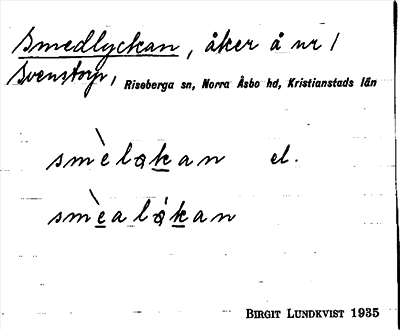 Smedlyckan, åker å nr 1
Svenstorp, Riseberga sn, Norra Åsbo hd, Kristianstads län
smèlạkan el.
smèalákan
BIRGIT LUNDKVIST 1935